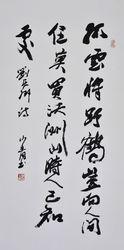 孤雲將野鶴豈向人間
住莫買沃洲山時人已知
處
劉長卿詩